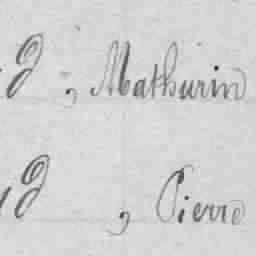 d , Mathurin
d , Pierre